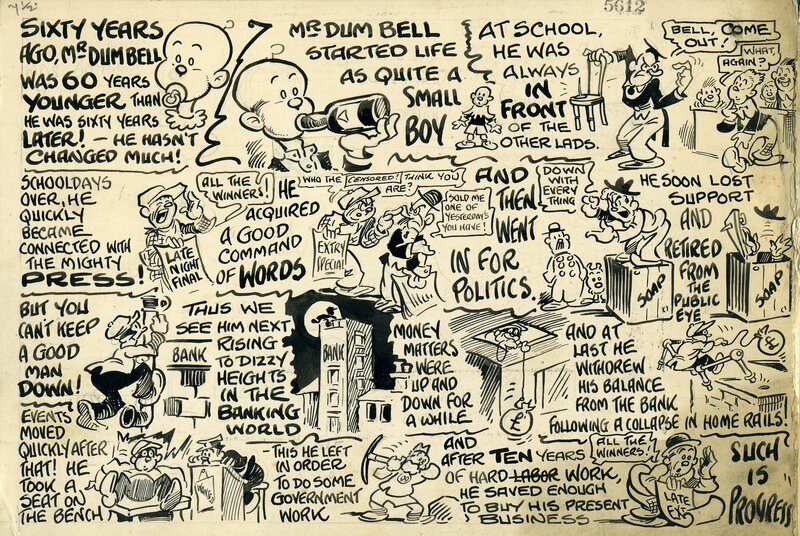 7½"
5612
SIXTY YEARS
AGO, MR DUM BELL
WAS 60 YEARS
YOUNGER THAN
HE WAS SIXTY YEARS
LATER! — HE HASN'T
CHANGED MUCH!
MR DUM BELL
STARTED LIFE
AS QUITE A
SMALL
BOY
AT SCHOOL,
HE WAS
ALWAYS
IN
FRONT
OF THE
OTHER LADS.
BELL, COME
OUT!
WHAT,
AGAIN?
SCHOOLDAYS
OVER, HE
QUICKLY
BECAME
CONNECTED WITH
THE MIGHTY
PRESS!
ALL THE
WINNERS!
LATE
NIGHT
FINAL
HE
ACQUIRED
A GOOD
COMMAND
OF WORDS
WHO THE CENSORED! THINK YOU
ARE?
EXTRY
SPECIAL
SOLD ME
ONE OF
YESTERDAY'S
YOU HAVE!
AND
THEN
WENT
IN FOR
POLITICS.
DOWN
WITH
EVERY
THING
SOAP
HE SOON LOST
SUPPORT
AND
RETIRED
FROM
THE
PUBLIC
EYE.
SOAP
BUT YOU
CAN'T KEEP
A GOOD
MAN
DOWN!
BANK
THUS WE
SEE HIM NEXT
RISING
TO DIZZY
HEIGHTS
IN THE
BANKING
WORLD
BANK
MONEY
MATTERS
WERE
UP AND
DOWN FOR
A WHILE
£
AND AT
LAST HE
WITHDREW
HIS BALANCE
FROM THE BANK
FOLLOWING A COLLAPSE IN HOME RAILS!
£
EVENTS
MOVED
QUICKLY AFTER
THAT! HE
TOOK A
SEAT ON
THE BENCH
— THIS HE LEFT
IN ORDER
TO DO SOME
GOVERNMENT
WORK
AND
AFTER TEN YEARS
OF HARD LABOR WORK,
HE SAVED ENOUGH
TO BUY HIS PRESENT
BUSINESS
ALL THE
WINNERS!
LATE
EXT
SUCH
IS
PROGRESS